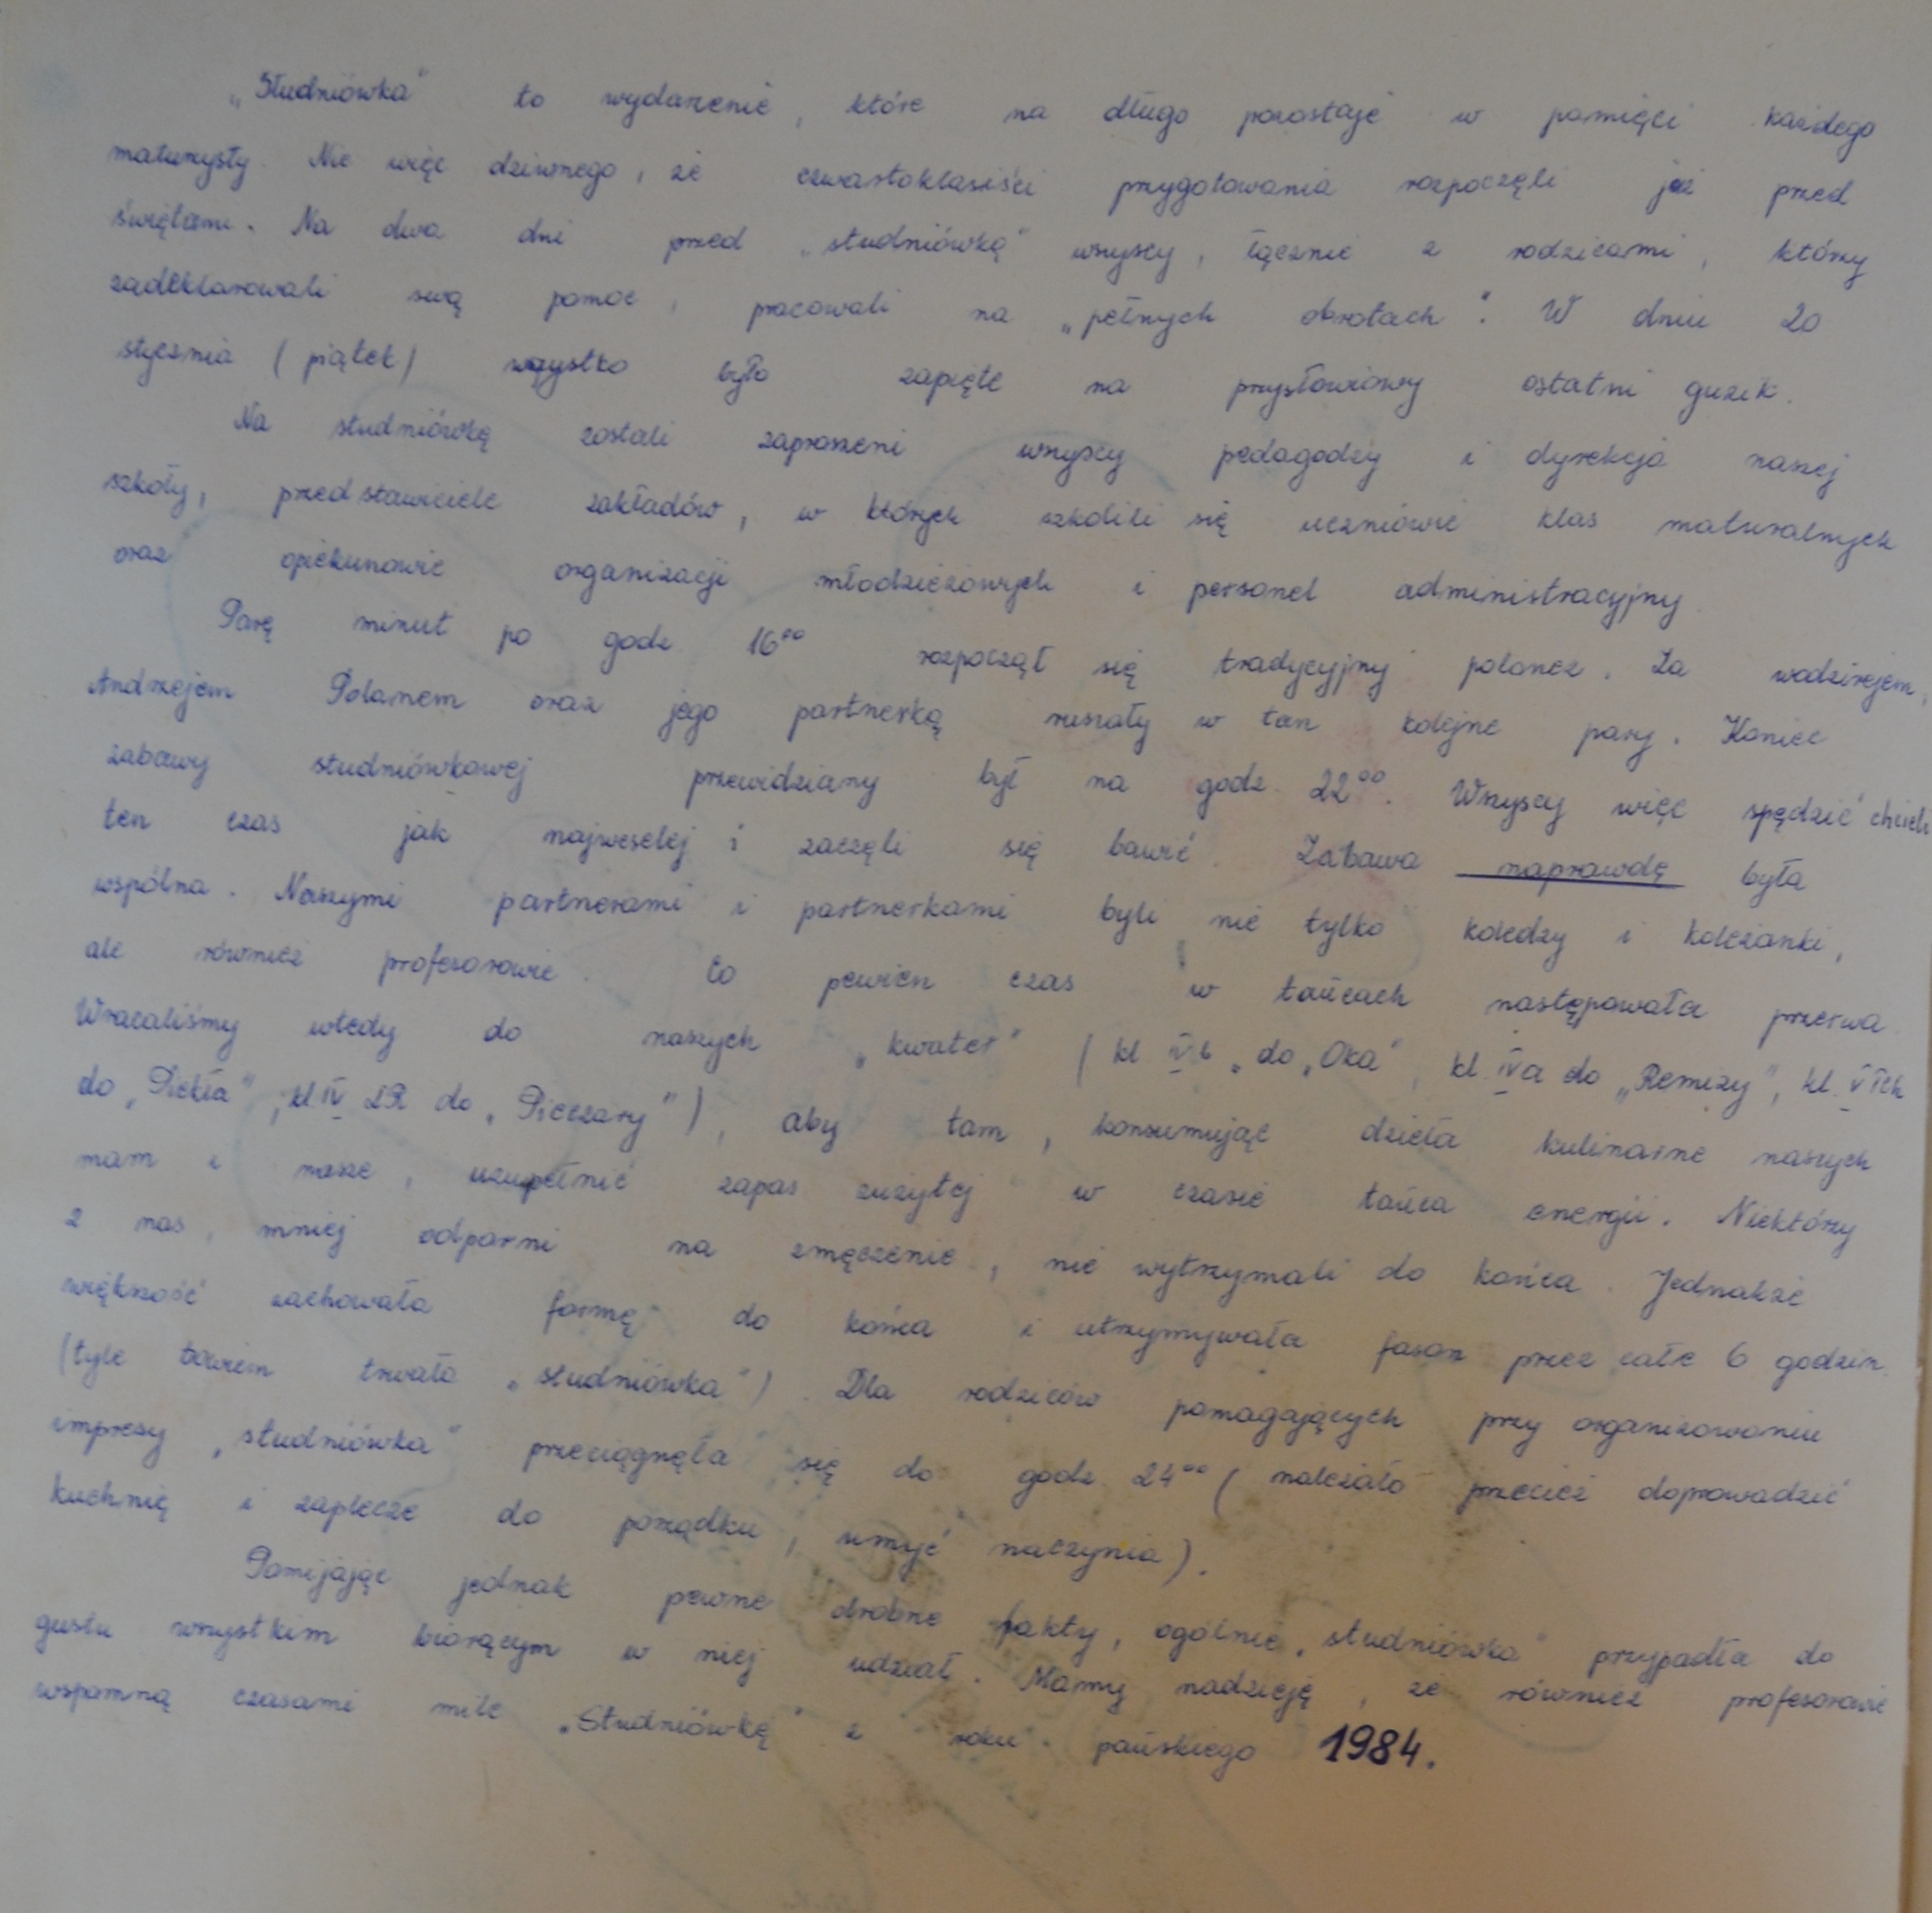 „Studniówka" to wydarzenie, które na długo pozostaje w pamięci każdego
maturzysty. Nic więc dziwnego, że czwartoklasiści przygotowania rozpoczęli już przed
świętami. Na dwa dni przed „studniówką" wszyscy, łącznie z rodzicami, którzy
zadeklarowali swą pomoc, pracowali na „pełnych obrotach". W dniu 20
stycznia (piątek) wszystko było zapięte na przysłowiowy ostatni guzik.
Na studniówkę zostali zaproszeni wszyscy pedagodzy i dyrekcja naszej
szkoły, przedstawiciele zakładów, w których szkolili się uczniowie klas maturalnych
oraz opiekunowie organizacji młodzieżowych i personel administracyjny.
Parę minut po godz 16⁰⁰ rozpoczął się tradycyjny polonez. Za wodzirejem,
Andrzejem Polamem oraz jego partnerką ruszały w tan kolejne pary. Koniec
zabawy studniówkowej przewidziany był na godz. 22⁰⁰. Wszyscy więc spędzić chcieli
ten czas jak najweselej i zaczęli się bawić. Zabawa naprawdę była
wspólna. Naszymi partnerami i partnerkami byli nie tylko koledzy i koleżanki,
ale również profesorowie. Co pewien czas w tańcach następowała przerwa.
Wracaliśmy wtedy do naszych „kwater" (kl IV b „do „Oka", kl. IV a do „Remizy", kl. V Tch
do „Piekła", kl IV LR do „Pieczary"), aby tam, konsumując dzieła kulinarne naszych
mam i nasze, uzupełnić zapas zużytej w czasie tańca energii. Niektórzy
z nas, mniej odporni na zmęczenie, nie wytrzymali do końca. Jednakże
większość zachowała formę do końca i utrzymywała fason przez całe 6 godzin.
(tyle bowiem trwała „studniówka"). Dla rodziców pomagających przy organizowaniu
imprezy „studniówka" przeciągnęła się do godz. 24⁰⁰ (należało przecież doprowadzić
kuchnię i zaplecze do porządku, umyć naczynia).
Pomijając jednak pewne drobne fakty, ogólnie „studniówka" przypadła do
gustu wszystkim biorącym w niej udział. Mamy nadzieję, że również profesorowie
wspomną czasami mile „Studniówkę" z roku pańskiego 1984.